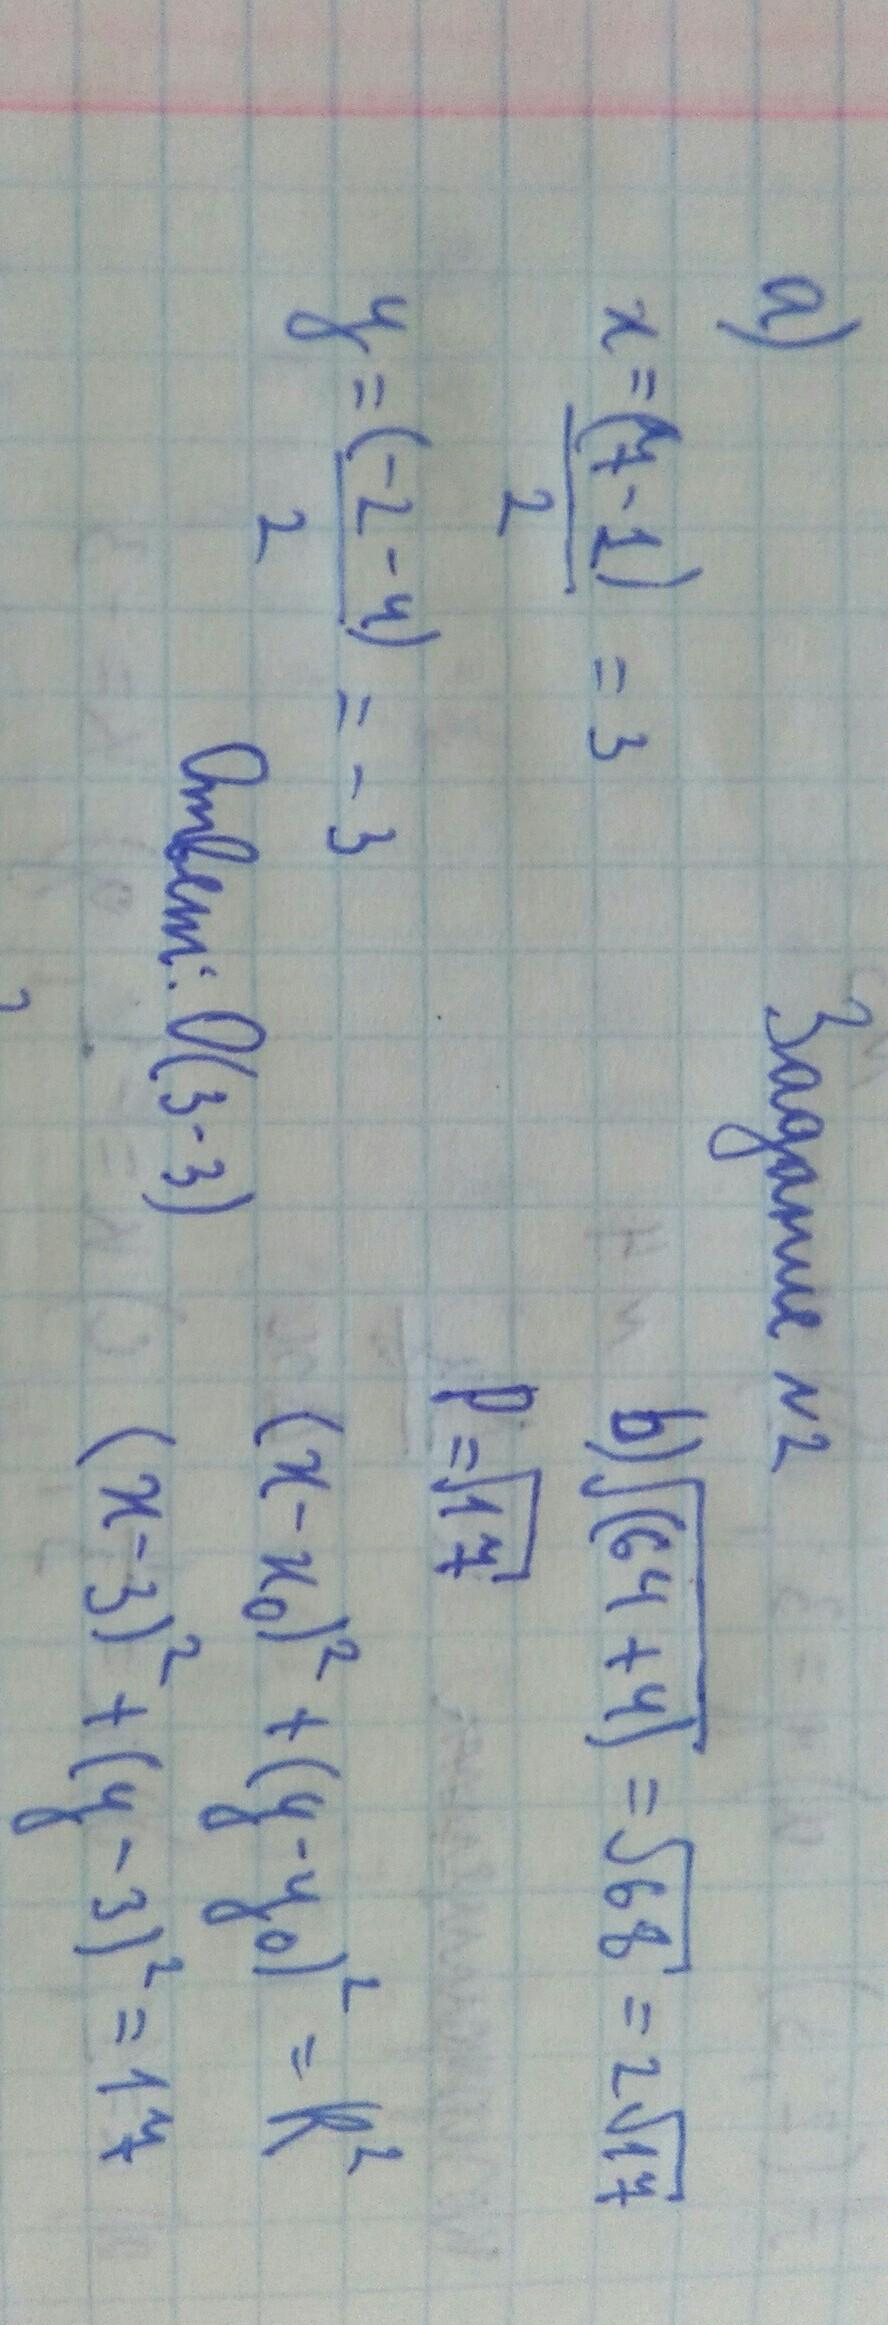 Задание №2
а)
x = (7-1)/2 = 3
y = (-2-4)/2 = -3
Ответ: O(3-3)
b) √(64+4) = √68 = 2√17
P = √17
(x-x₀)² + (y-y₀)² = R²
(x-3)² + (y-3)² = 17